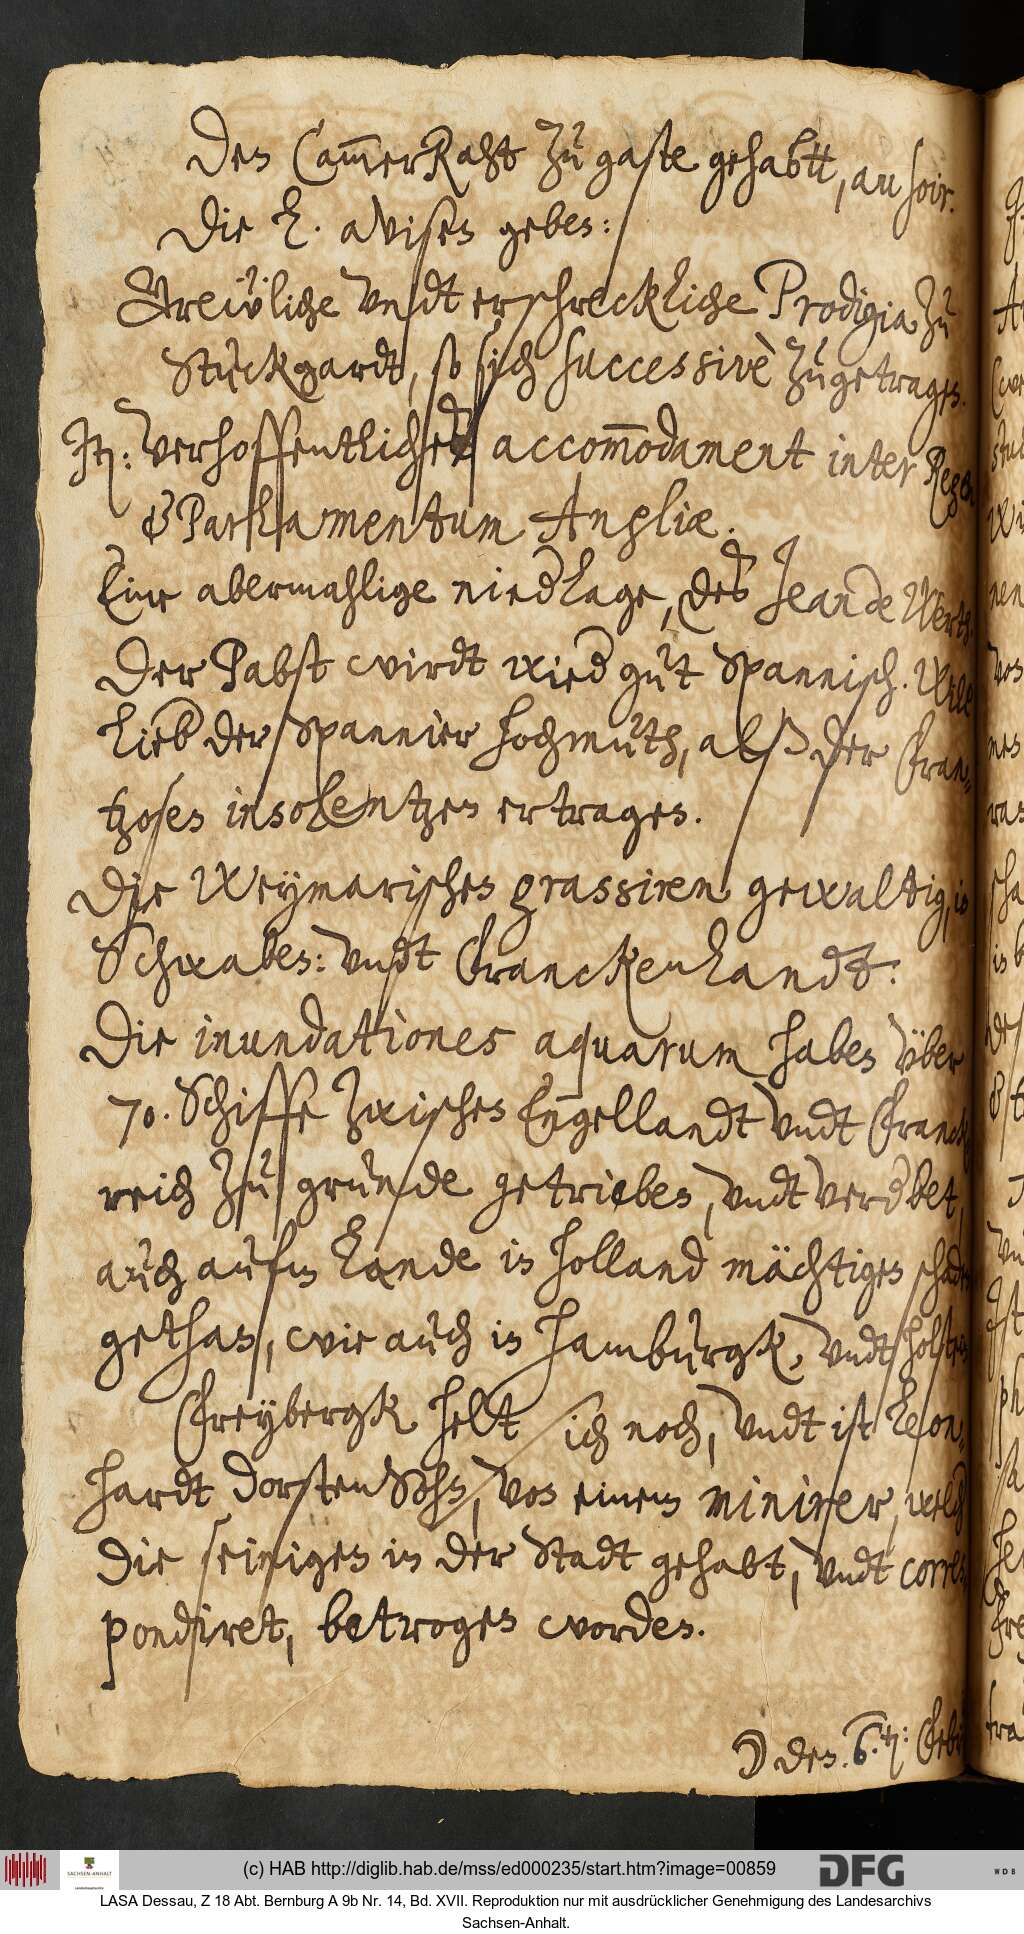 Den CammerRaht zu gaste gehabtt, au soir.
Die L. avisen geben:
Grewliche undt erschreckliche Prodigia zu
Stuckgardt, so sich successivè zugetragen.
It: verhoffentliches accommodament inter Regem
& Parliamentum Angliæ.
Eine abermahlige niederlage, des Jean de Werth.
Der Pabst wirdt wieder gut Spannisch. Will
lieber der Spannier hochmuth, alß der Fran-
tzosen insolentzen ertragen.
Die Weymarischen grassiren gewaltig, in
Schwaben: undt Franckenlandt.
Die inundationes aquarum haben über
70. Schiffe zwischen Engellandt undt Franck-
reich zu grunde getrieben, undt verderbet,
auch aufm Lande in Holland mächtigen schaden
gethan, wie auch in Hamburgk, undt Holstein
Freybergk helt sich noch, undt ist Leon-
hardt DorstenSohn, von einem minirer, welcher
die seinigen in der Stadt gehabt, undt corres-
pondiret, betrogen worden.
☽ den 6. t: Feb
(c) HAB http://diglib.hab.de/mss/ed000235/start.htm?image=00859
SACHSEN-ANHALT
DFG
WDB
LASA Dessau, Z 18 Abt. Bernburg A 9b Nr. 14, Bd. XVII. Reproduktion nur mit ausdrücklicher Genehmigung des Landesarchivs
Sachsen-Anhalt.